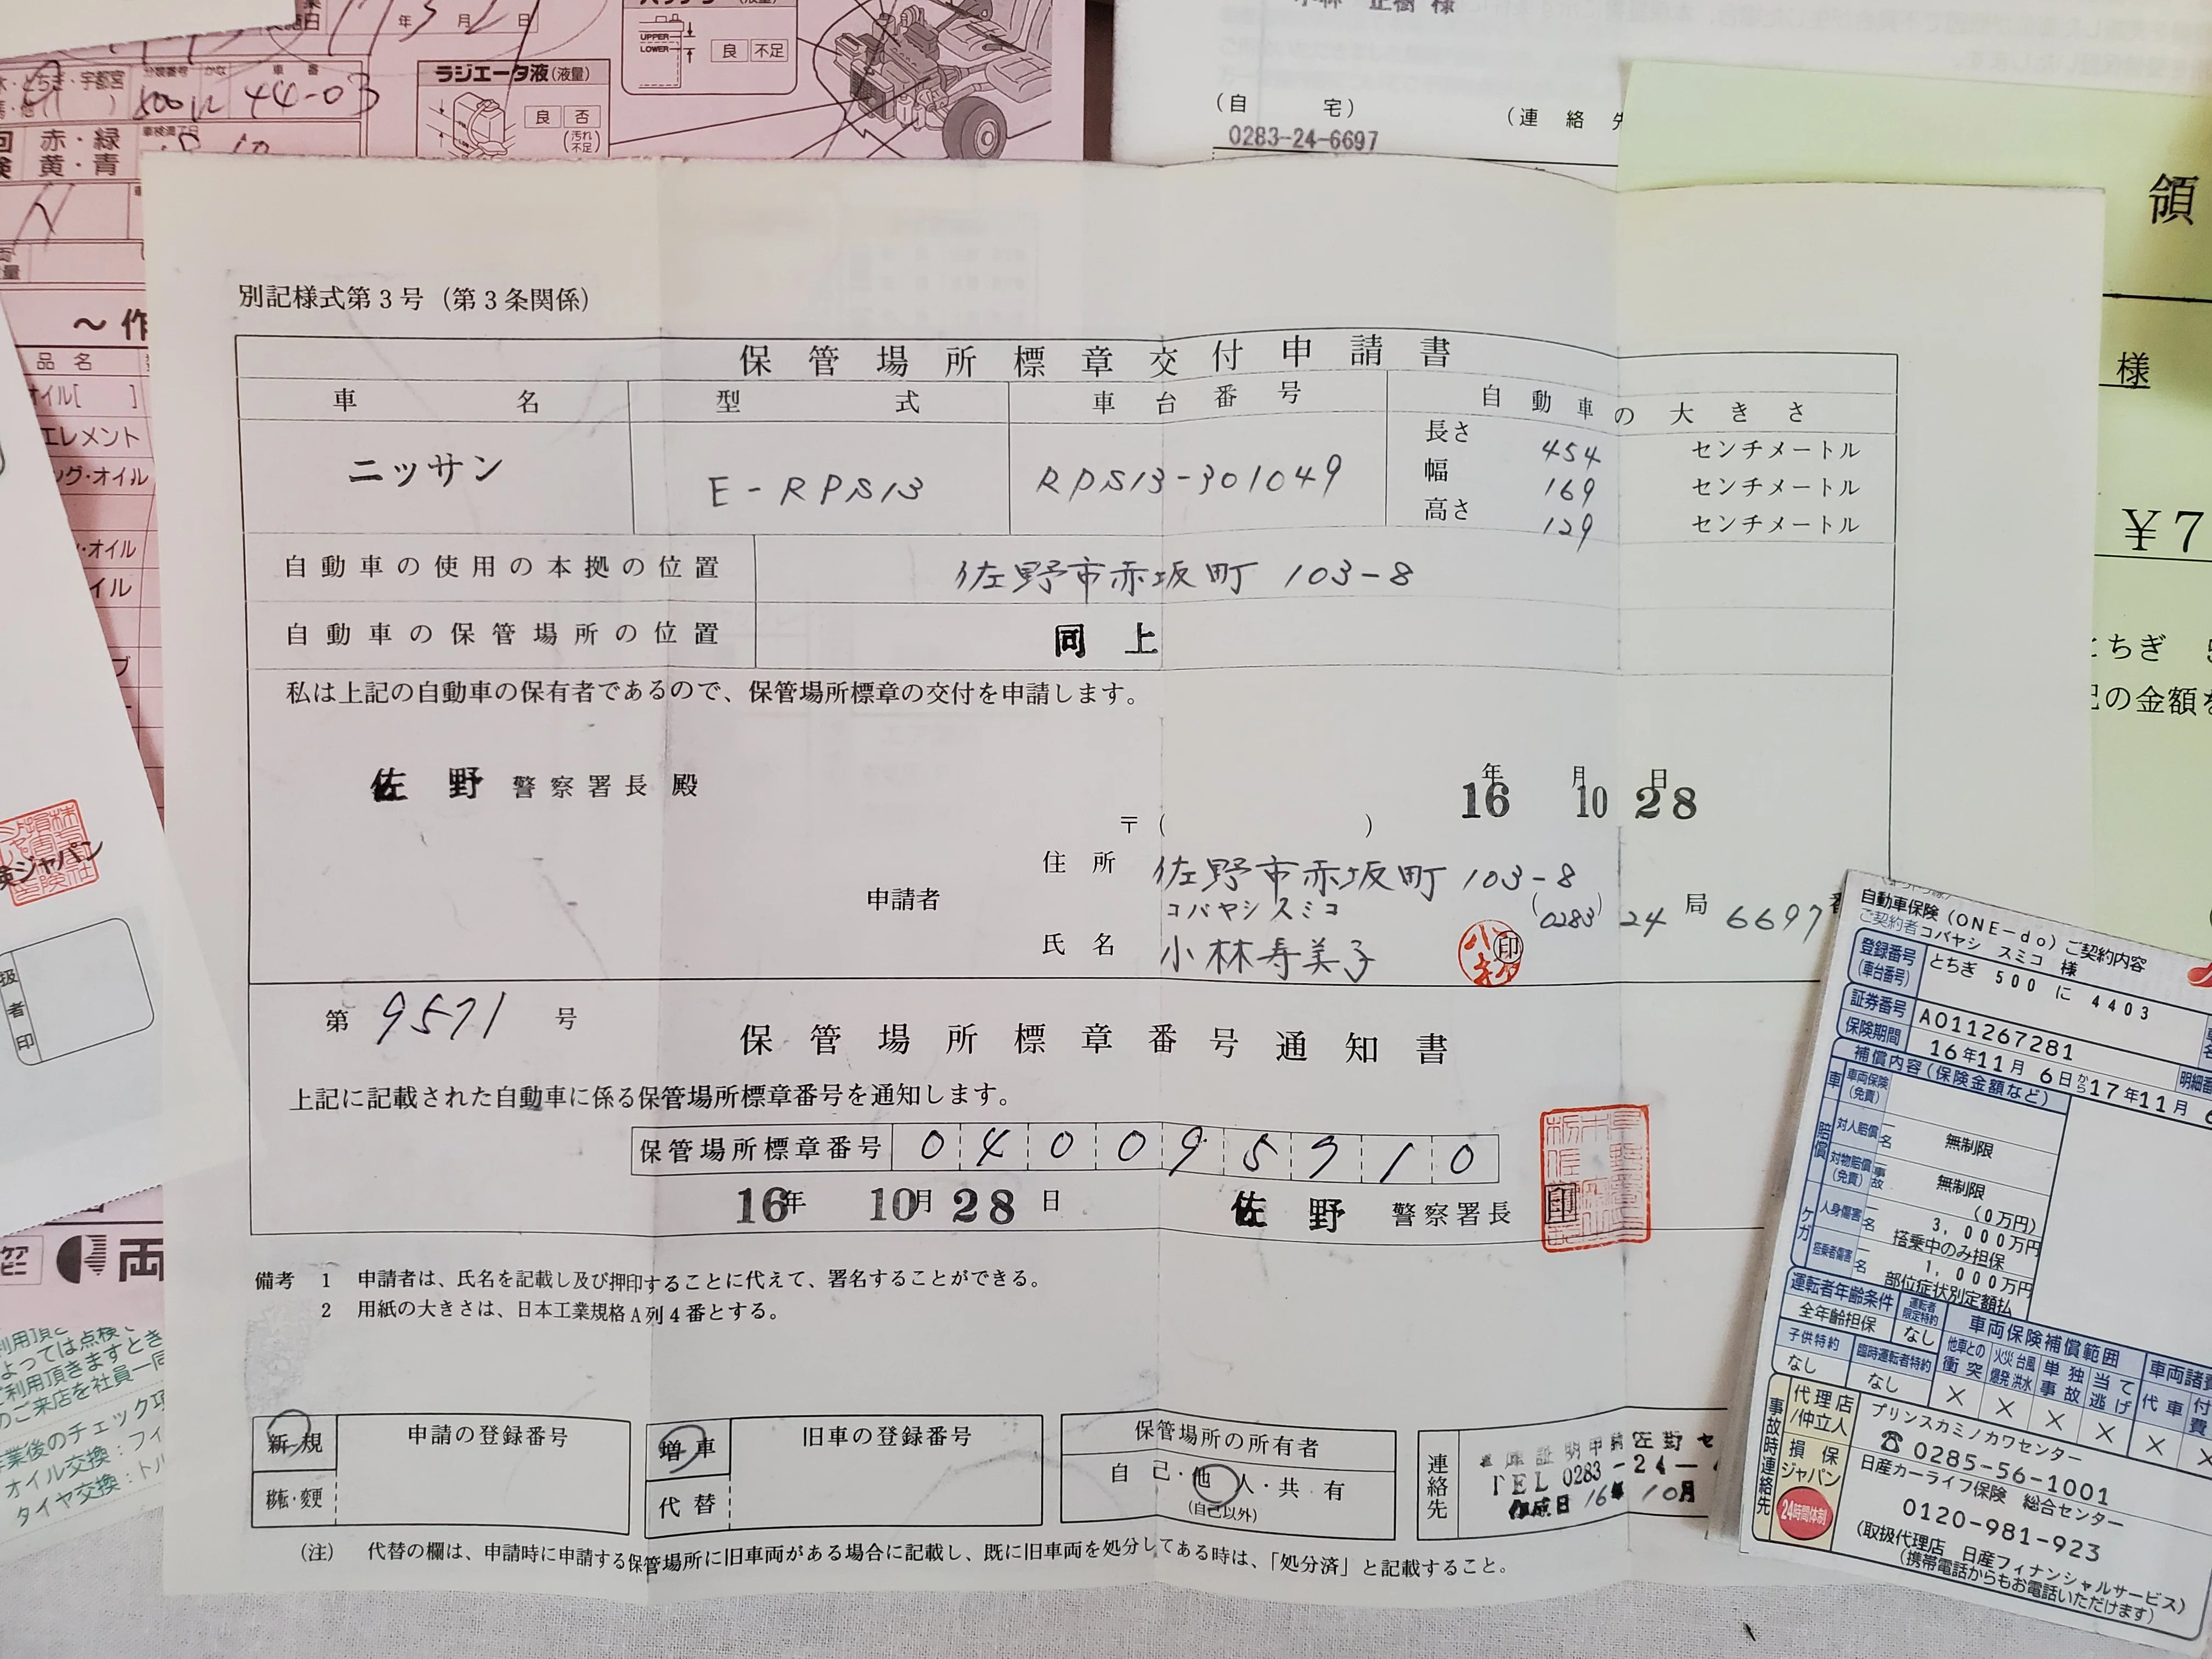 年 月 日
ラジエータ液(液量)
UPPER
LOWER
良 不足
良 否
(汚れ 不足)
とちぎ・宇都宮
分類番号 かな 車番
500 に 44-03
赤・緑
黄・青
車検満了日
小林 正樹 様
(自 宅)
0283-24-6697
(連 絡
領
様
¥7
とちぎ
の金額を
~作
品 名
オイル[ ]
エレメント
グ・オイル
・オイル
イル
別記様式第3号(第3条関係)
保管場所標章交付申請書
車 名 型 式 車台番号 自動車の大きさ
ニッサン E-RPS13 RPS13-301049
長さ 454 センチメートル
幅 169 センチメートル
高さ 129 センチメートル
自動車の使用の本拠の位置 佐野市赤坂町 103-8
自動車の保管場所の位置 同 上
私は上記の自動車の保有者であるので、保管場所標章の交付を申請します。
佐 野 警察署長 殿
16年 10月 28日
〒( )
住 所 佐野市赤坂町 103-8
申請者
コバヤシ スミコ
(0283) 24 局 6697
氏 名 小林寿美子 印
第 9571 号
保管場所標章番号通知書
上記に記載された自動車に係る保管場所標章番号を通知します。
保管場所標章番号 0 4 0 0 9 5 7 1 0
16年 10月 28日 佐 野 警察署長 印
備考 1 申請者は、氏名を記載し及び押印することに代えて、署名することができる。
2 用紙の大きさは、日本工業規格A列4番とする。
新規 申請の登録番号
移転・変更
増車 旧車の登録番号
代替
保管場所の所有者
自 己・他 人・共 有
(自己以外)
連絡先
TEL 0283-24-
作成日 16年 10月
(注) 代替の欄は、申請時に申請する保管場所に旧車両がある場合に記載し、既に旧車両を処分してある時は、「処分済」と記載すること。
険ジャパン
扱者印
両
利用頂き
よっては点検、
ご利用頂きますとき
のご来店を社員一同
業後のチェック項
オイル交換:フィ
タイヤ交換:トル
自動車保険(ONE-do)ご契約内容
ご契約者 コバヤシ スミコ 様
登録番号 (車台番号) とちぎ 500 に 4403
証券番号 A011267281
保険期間 16年11月 6日から17年11月 6
明細番
補償内容(保険金額など)
車両保険 (免責)
賠償
対人賠償 一名 無制限
対物賠償 (免責) 一事故 無制限
(0万円)
ケガ
人身傷害 一名 3,000万円
搭乗中のみ担保
搭乗者傷害 一名 1,000万円
部位症状別定額払
運転者年齢条件 運転者限定特約
全年齢担保 なし
子供特約 臨時運転者特約
なし なし
車両保険補償範囲 車両諸費
他車との衝突 火災 爆発 台風 洪水 単独事故 当て逃げ 代車 付
× × × × ×
事故時連絡先
代理店/仲立人
プリンスカミノカワセンター
☎0285-56-1001
損保ジャパン
24時間体制
日産カーライフ保険 総合センター
0120-981-923
(取扱代理店 日産フィナンシャルサービス)
(携帯電話からもお電話いただけます)